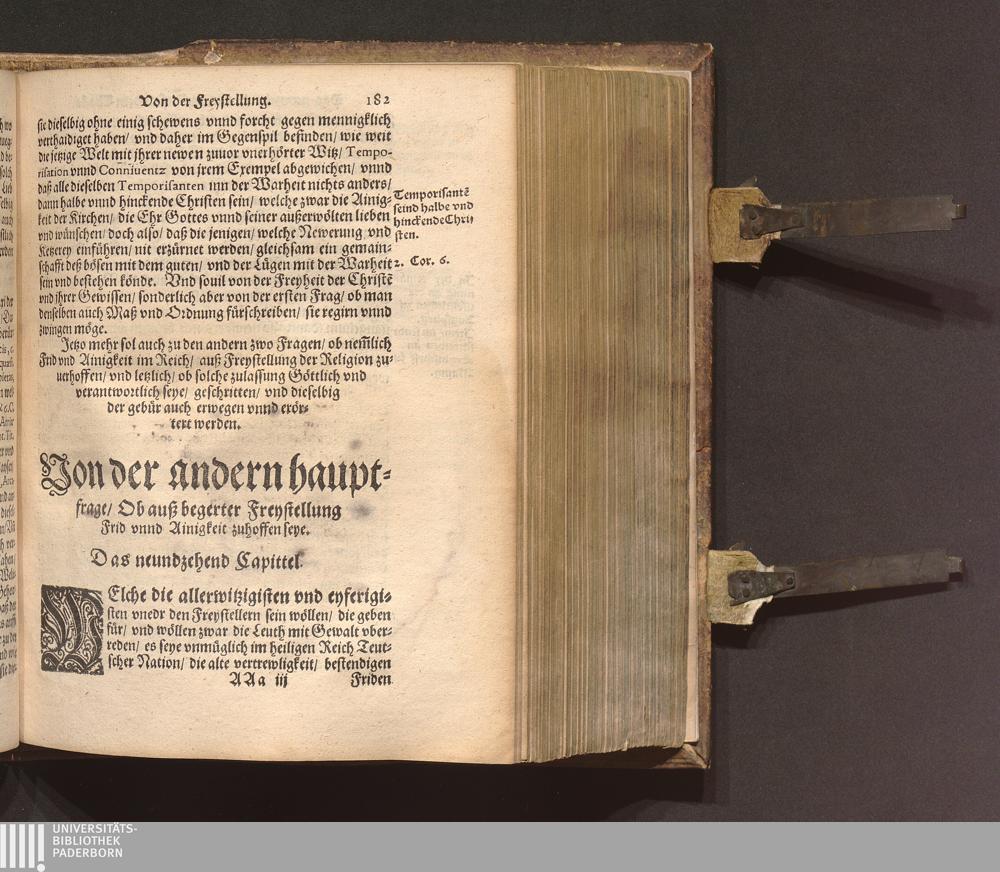 Von der Freystellung. 182
sie dieselbig ohne einig schewens vnnd forcht gegen mennigklich
verthaidiget haben/ vnd daher im Gegenspil befinden/ wie weit
die jetzige Welt mit jhrer newen zuuor vnerhörter Witz/ Tempo-
risation vnnd Conniuentz von jrem Exempel abgewichen/ vnnd
daß alle dieselben Temporisanten inn der Warheit nichts anders/
dann halbe vnnd hinckende Christen sein/ welche zwar die Ainig-
keit der Kirchen/ die Ehr Gottes vnnd seiner außerwölten lieben
vnd wünschen/ doch also/ daß die jenigen/ welche Newerung vnd
Ketzerey einführen/ nit erzürnet werden/ gleichsam ein gemain-
schafft deß bösen mit dem guten/ vnd der Lügen mit der Warheit
sein vnd bestehen könde. Vnd souil von der Freyheit der Christē
vnd jhrer Gewissen/ sonderlich aber von der ersten Frag/ ob man
denselben auch Maß vnd Ordnung fürschreiben/ sie regirn vnnd
zwingen möge.
Temporisantē
seind halbe vnd
hinckende Chri-
sten.
2. Cor. 6.
Jetzo mehr sol auch zu den andern zwo Fragen/ ob nemlich
Frid vnd Ainigkeit im Reich/ auß Freystellung der Religion zu-
uerhoffen/ vnd letzlich/ ob solche zulassung Göttlich vnd
verantwortlich seye/ geschritten/ vnd dieselbig
der gebür auch erwegen vnnd erör-
tert werden.
Von der andern haupt-
frage/ Ob auß begerter Freystellung
Frid vnnd Ainigkeit zuhoffen seye.
Das neundzehend Capittel.
WElche die allerwitzigisten vnd eyferigi-
sten vnedr den Freystellern sein wöllen/ die geben
für/ vnd wöllen zwar die Leuth mit Gewalt vber-
reden/ es seye vnmüglich im heiligen Reich Teut-
scher Nation/ die alte vertrewligkeit/ bestendigen
AAa iij Friden
UNIVERSITÄTS-
BIBLIOTHEK
PADERBORN